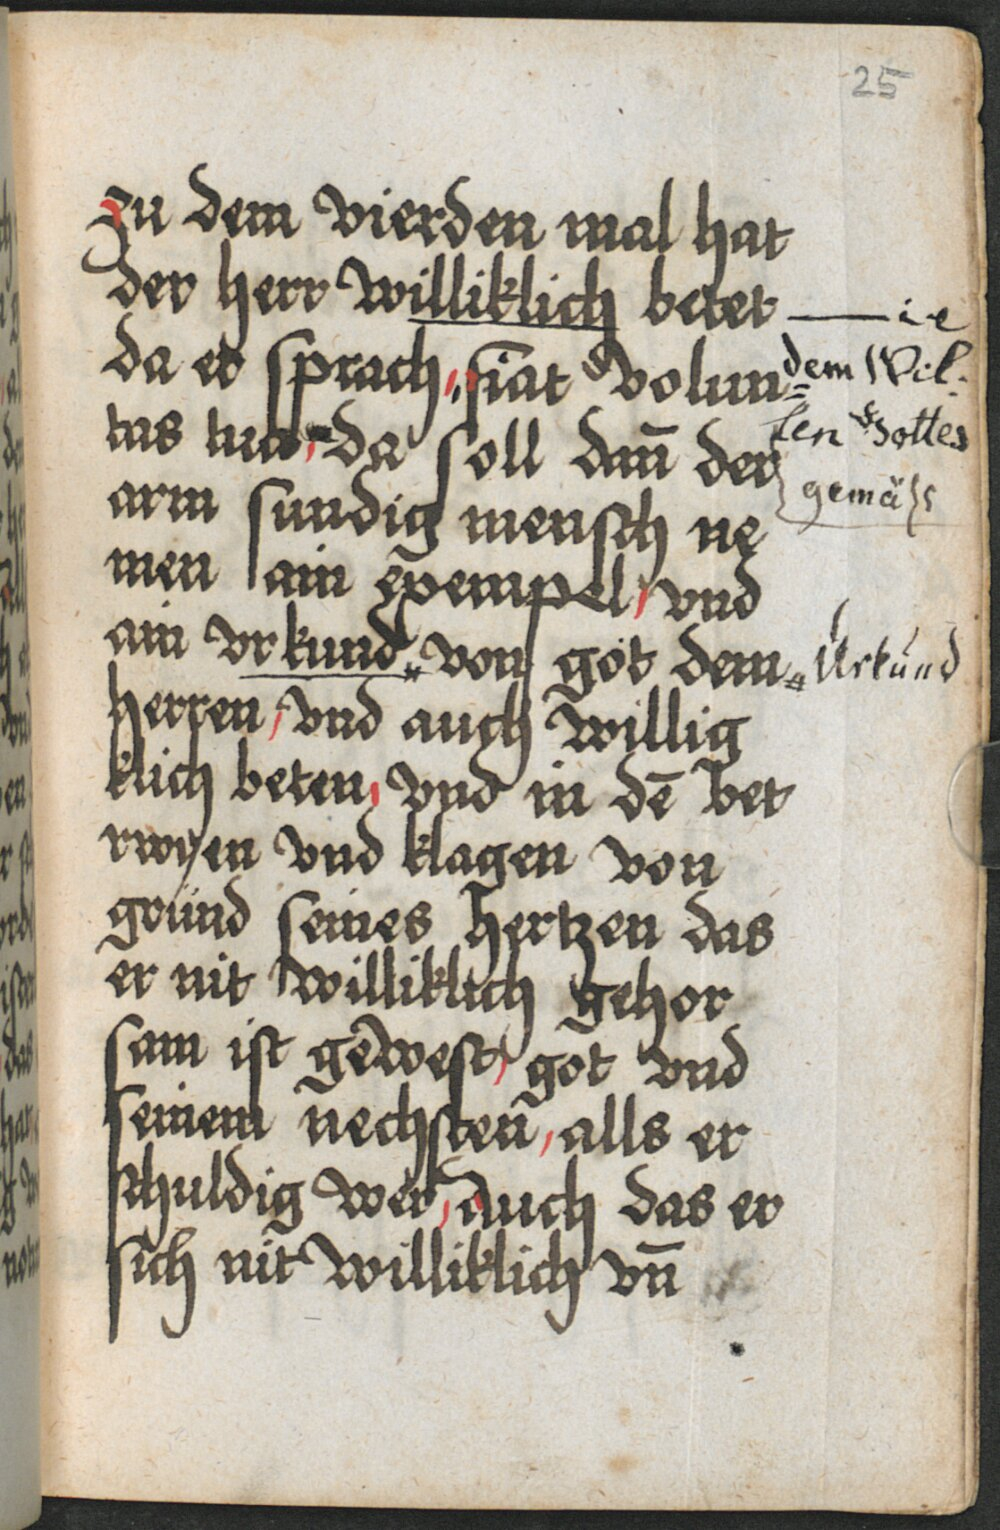 25
zu dem vierden mal hat
der herr williklich betet
da er sprach, fiat volun=
tas tua, da soll dañ der
arm sundig mensch ne
men ain exempel, vnd
ain vrkund von got dem
herren, vnd auch willig
klich beten, vnd in dē bet
rwyen vnd klagen von
grund seines hertzen das
er nit williklich gehor
sam ist gewest, got vnd
seinem nechsten, alls er
schuldig wer, Auch das er
sich nit williklich vñ
— i.e
dem Wil-
len Gottes
gemäß
Urkund